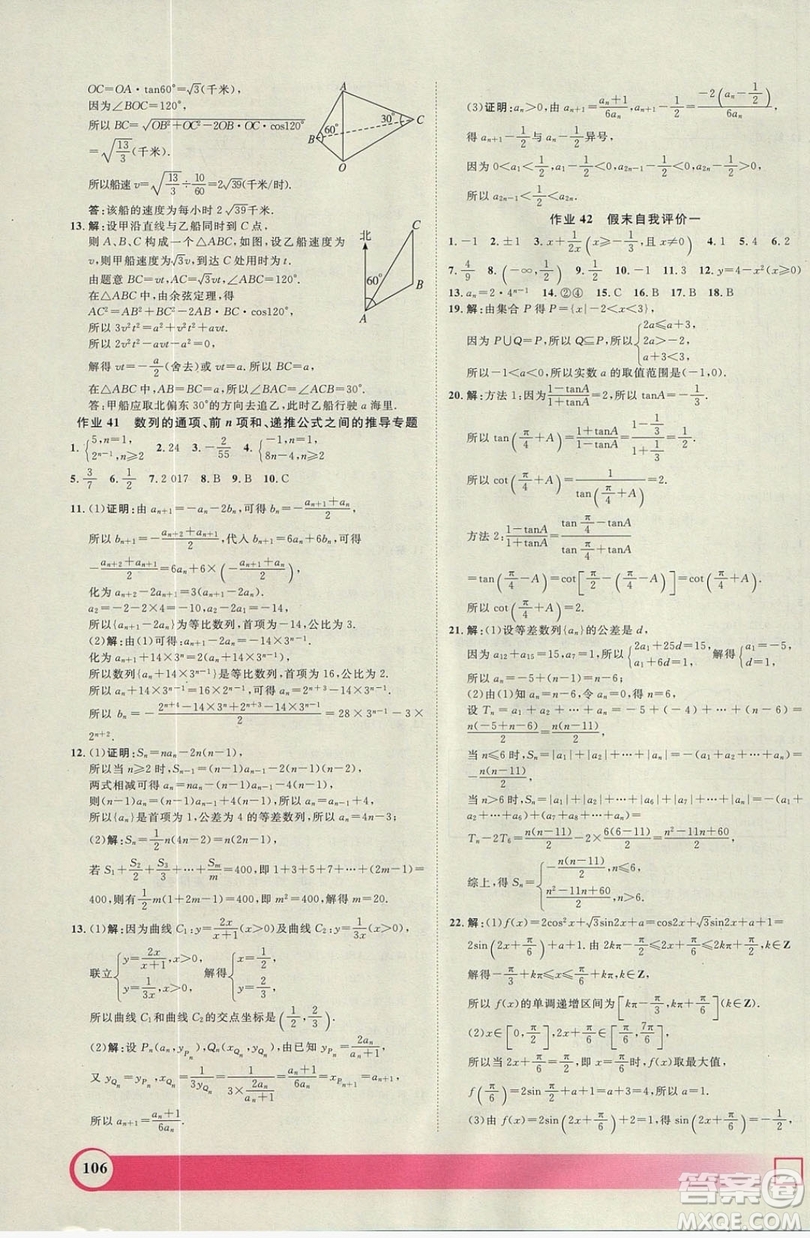 OC=OA·tan60°=√3(千米),
因为∠BOC=120°,
所以 BC=√(OB²+OC²-2OB·OC·cos120°)
=√(13/3)(千米).
所以船速 v=√(13/3)÷10/60=2√39(千米/时).
答:该船的速度为每小时 2√39千米.
A
B
C
O
60°
30°
13.解:设甲沿直线与乙船同时到 C 点,
则 A、B、C 构成一个△ABC,如图,设乙船速度
为 v,则甲船速度为√3v,到达 C 处用时为 t.
由题意 BC=vt,AC=√3vt,∠ABC=120°.
在△ABC 中,由余弦定理得
AC²=AB²+BC²-2AB·BC·cos120°,
所以 3v²t²=a²+v²t²+avt.
所以 2v²t²-avt-a²=0,
解得 vt=-a/2(舍去)或 vt=a.所以 BC=a,
在△ABC 中 AB=BC=a,
所以∠BAC=∠ACB=30°.
答:甲船应取北偏东 30°的方向去追乙,此时乙船行驶 a 海里.
北
60°
A
B
C
作业 41 数列的通项、前 n 项和、递推公式之间的推导专题
1.{5,n=1, 2ⁿ⁻¹,n≥2 2.24 3.-2/55 4.{1,n=1, 8n-4,n≥2
5.3/7 6.1/2 7.2 017 8.B 9.C 10.B
11.(1)证明:由 aₙ₊₁=-aₙ-2bₙ,可得 bₙ=-(aₙ₊₁+aₙ)/2,
所以 bₙ₊₁=-(aₙ₊₂+aₙ₊₁)/2,代入 bₙ₊₁=6aₙ+6bₙ,可得
-(aₙ₊₂+aₙ₊₁)/2=6aₙ+6×(-(aₙ₊₁+aₙ)/2),
化为 aₙ₊₂-2aₙ₊₁=3(aₙ₊₁-2aₙ),
a₂=-2-2×4=-10,a₂-2a₁=-14.
所以{aₙ₊₁-2aₙ}为等比数列,首项为-14,公比为 3.
(2)解:由(1)可得:aₙ₊₁-2aₙ=-14×3ⁿ⁻¹,
化为 aₙ₊₁+14×3ⁿ=2(aₙ+14×3ⁿ⁻¹),
所以数列{aₙ+14×3ⁿ⁻¹}是等比数列,首项为 16,公比为 2.
所以 aₙ+14×3ⁿ⁻¹=16×2ⁿ⁻¹,可得 aₙ=2ⁿ⁺³-14×3ⁿ⁻¹,
所以 bₙ=-(2ⁿ⁺⁴-14×3ⁿ+2ⁿ⁺³-14×3ⁿ⁻¹)/2=28×3ⁿ⁻¹-3×
2ⁿ⁺².
12.(1)证明:Sₙ=naₙ-2n(n-1),
所以当 n≥2 时,Sₙ₋₁=(n-1)aₙ₋₁-2(n-1)(n-2),
两式相减可得 aₙ=naₙ-(n-1)aₙ₋₁-4(n-1),
则(n-1)aₙ-(n-1)aₙ₋₁=4(n-1),所以 aₙ-aₙ₋₁=4,
所以{aₙ}是首项为 1,公差为 4 的等差数列,所以 aₙ=4n-3;
(2)解:Sₙ=1/2n(4n-2)=n(2n-1),
若 S₁+S₂/2+S₃/3+…+Sₘ/m=400,即 1+3+5+7+…+(2m-1)=
400,则有1/2m(1+2m-1)=400,即 m²=400,解得 m=20.
13.(1)解:因为曲线 C₁:y=2x/(x+1)(x>0)及曲线 C₂:y=1/3x(x>0),
联立{y=2x/(x+1), y=1/3x,(x>0) 解得{x=1/2, y=2/3.
所以曲线 C₁和曲线 C₂的交点坐标是(1/2,2/3).
(2)解:设 Pₙ(aₙ,y_Pₙ),Qₙ(x_Qₙ,y_Qₙ),由已知 y_Pₙ=2aₙ/(aₙ+1),
又 y_Qₙ=y_Pₙ,x_Qₙ=1/(3y_Qₙ)=1/(3×2aₙ/(aₙ+1))=(aₙ+1)/6aₙ,
所以 aₙ₊₁=(aₙ+1)/6aₙ.
(3)证明:aₙ>0,由 aₙ₊₁=(aₙ+1)/6aₙ,aₙ₊₁-1/2=-2(aₙ-1/2)/6aₙ,
得 aₙ₊₁-1/2与 aₙ-1/2异号,
因为 0<a₁<1/2,a₁-1/2<0,所以 a₂ₙ₋₁<1/2,a₂ₙ>1/2,
所以 a₂ₙ₋₁<1/2<a₂ₙ.
作业 42 假末自我评价一
1.-1 2.±1 3.x+1/2x(x>-1/2,且 x≠0) 4.1 5.4 6.2
7.4/9 8.(-∞,1/2) 9.2√2 10.-1 11.3 12.y=4-x²(x≥0)
13.aₙ=2·4ⁿ⁻¹ 14.②④ 15.C 16.B 17.B 18.B
19.解:由集合 P 得 P={x|-2<x<3},
因为 P∪Q=P,所以 Q⊆P,所以{2a≤a+3, 2a>-2, a+3<3,
所以 a 的取值范围是(-1,0).
20.解:方法 1:因为(1-tanA)/(1+tanA)=2,所以 1-tanA=2+2tanA,所以 tanA=-1/3.
所以 cot(π/4+A)=2.
方法 2:
=tan(π/4-A)=cot[π/2-(π/4-A)]=cot(π/4+A).
所以 cot(π/4+A)=2.
21.解:(1)设等差数列{aₙ}的公差是 d,
因为 a₁₂+a₁₅=15,a₇=1,所以{2a₁+25d=15, a₁+6d=1, 解得{a₁=-5, d=1.
所以 aₙ=-5+n-1=n-6;
(2)由(1)知 aₙ=n-6,令 aₙ=0,得 n=6,
设 Tₙ=a₁+a₂+…+aₙ=-5-4-3-…+(n-6)=
n(-5+n-6)/2=n(n-11)/2,
当 n≤6 时,Sₙ=|a₁|+|a₂|+…+|aₙ|=-(a₁+a₂+…+aₙ)=
-n(n-11)/2,
当 n>6 时,Sₙ=|a₁|+|a₂|+…+|a₆|+…+|aₙ|=-a₁-a₂
-…-a₆+a₇+…+aₙ=a₁+a₂+…+aₙ-2(a₁+a₂+…+a₆)=
Tₙ-2T₆=n(n-11)/2-2×6(6-11)/2=(n²-11n+60)/2,
综上,得 Sₙ={-n(n-11)/2,n≤6, (n²-11n+60)/2,n>6.
22.解:(1)f(x)=2cos²x+√3sin2x=cos2x+√3sin2x+1=
2sin(2x+π/6)+1,由 2kπ-π/2≤2x+π/6≤2kπ+π/2,k∈Z
解得-π/3+kπ≤x≤kπ+π/6,k∈Z
所以 f(x)的单调递增区间为[kπ-π/3,kπ+π/6],k∈Z.
(2)x∈[0,π/2],2x+π/6∈[π/6,7π/6],
所以当 2x+π/6=π/2,即 x=π/6时,f(x)取最大值,
f(π/6)=2sin π/2+1=2+1=3.
(3)由 f(x)=2sin(2x+π/6)+1=2,所以 sin(2x+π/6)=1/2,
106
答案圈
MXQE.COM